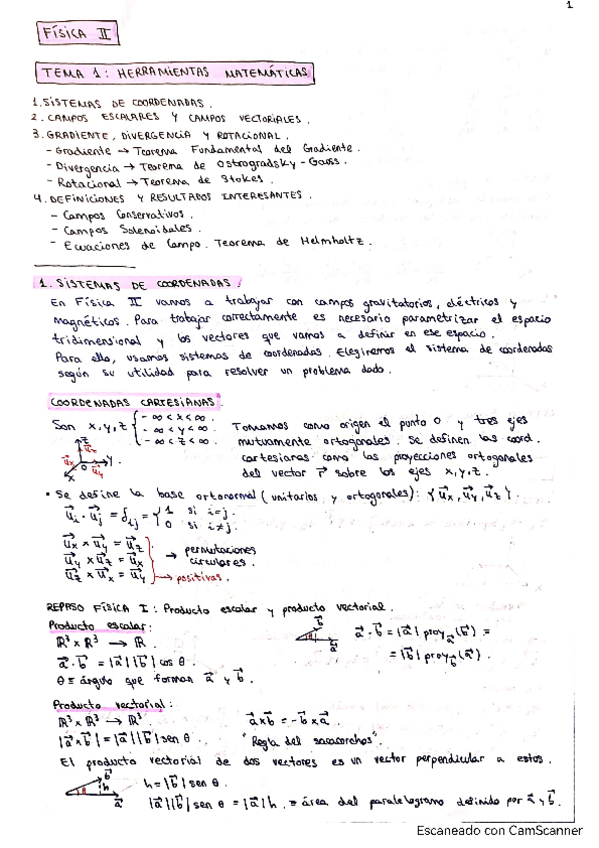 1
FÍSICA II
TEMA 1: HERRAMIENTAS MATEMÁTICAS
1. SISTEMAS DE COORDENADAS.
2. CAMPOS ESCALARES Y CAMPOS VECTORIALES.
3. GRADIENTE, DIVERGENCIA Y ROTACIONAL.
- Gradiente → Teorema Fundamental del Gradiente.
- Divergencia → Teorema de Ostrogradsky-Gauss.
- Rotacional → Teorema de Stokes.
4. DEFINICIONES Y RESULTADOS INTERESANTES.
- Campos Conservativos.
- Campos Solenoidales.
- Ecuaciones de Campo. Teorema de Helmholtz.
1. SISTEMAS DE COORDENADAS:
En Física II vamos a trabajar con campos gravitatorios, eléctricos y
magnéticos. Para trabajar correctamente es necesario parametrizar el espacio
tridimensional y los vectores que vamos a definir en ese espacio.
Para ello, usamos sistemas de coordenadas. Elegiremos el sistema de coordenadas
según su utilidad para resolver un problema dado.
COORDENADAS CARTESIANAS:
Son x, y, z { -∞ < x < ∞.
-∞ < y < ∞.
-∞ < z < ∞.
Tomamos como origen el punto O y tres ejes
mutuamente ortogonales. Se definen las coord.
cartesianas como las proyecciones ortogonales
del vector r⃗ sobre los ejes x, y, z.
z u⃗z O u⃗x u⃗y y x
• Se define la base ortonormal (unitarios y ortogonales): {u⃗x, u⃗y, u⃗z}
u⃗i · u⃗j = δij = { 1 si i=j.
0 si i≠j.
u⃗x × u⃗y = u⃗z
u⃗y × u⃗z = u⃗x
u⃗z × u⃗x = u⃗y
→ permutaciones
circulares.
→ positivas.
REPASO FÍSICA I: Producto escalar y producto vectorial.
Producto escalar:
ℝ³ × ℝ³ → ℝ.
a⃗ · b⃗ = |a⃗| |b⃗| cos θ.
θ ≡ ángulo que forman a⃗ y b⃗.
b⃗ θ a⃗
a⃗ · b⃗ = |a⃗| proy a⃗ (b⃗) =
= |b⃗| proy b⃗ (a⃗).
Producto vectorial:
ℝ³ × ℝ³ → ℝ³
|a⃗ × b⃗| = |a⃗| |b⃗| sen θ.
a⃗ × b⃗ = - b⃗ × a⃗.
"Regla del sacacorchos".
El producto vectorial de dos vectores es un vector perpendicular a estos.
b⃗ θ h a⃗
h = |b⃗| sen θ.
|a⃗| |b⃗| sen θ = |a⃗| h. ≡ área del paralelogramo definido por a⃗ y b⃗.
Escaneado con CamScanner